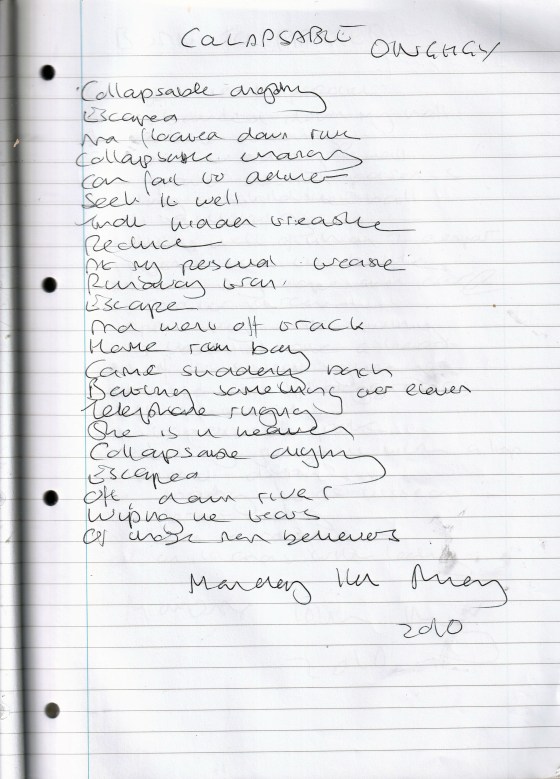 COLAPSABLE DINGHGY
Collapsable dinghy
Escaped
And floated down river
Collapsable
Can fail to
Seek it well
hidden treasure
Reduce
At my personal
Runaway train
Escape
And went off track
Home town boy
Came suddenly back
something over eleven
Telephone ringing
She is in heaven
Collapsable dinghy
Escaped
Off down river
Wiping the tears
Of those non believers
2010